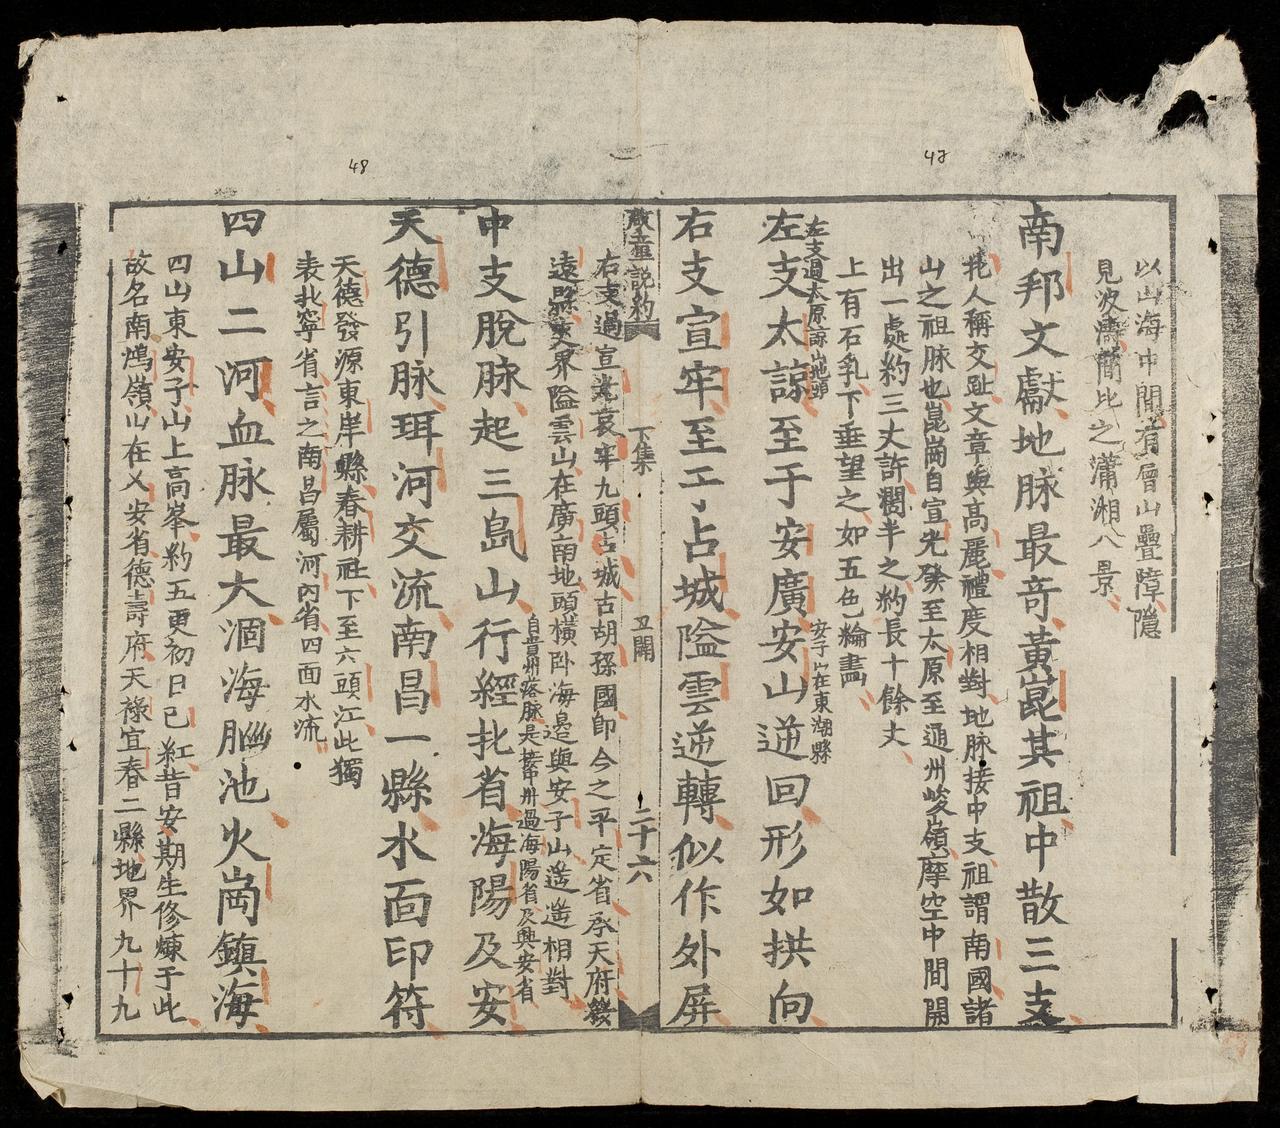 47
以山海中間有層山疊障隱
見波濤簡比之瀟湘八景
南邦文獻地脉最奇黃崑其祖中散三支
北人稱交趾文章與高麗禮度相對地脉接中支祖謂南國諸
山之祖脉也崑崗自宣光發至太原至通州峻嶺摩空中間開
出一處約三丈許濶半之約長十餘丈
上有石乳下垂望之如五色綸畵
左支太諒至于安廣安山逆回形如拱向
左支過太原諒山地頭
安子山在東潮縣
右支宣牢至于占城隘雲逆轉似作外屏
啟童說約
下集
丑開
二十六
48
右支過宣光哀牢九頭占城古胡孫國即今之平定省承天府發
遠縣交界隘雲山在廣南地頭橫卧海邊與安子山遙遙相對
中支脫脉起三島山行經北省海陽及安
自貴州落脉是接中州過海陽省及興安省
天德引脉珥河交流南昌一縣水面印符
天德發源東岸縣春耕社下至六頭江此獨
表北寧省言之南昌屬河內省四面水流
四山二河血脉最大涸海腦池火崗鎮海
四山東安子山上高峯約五更初日已紅昔安期生修煉于此
故名南鴻嶺山在乂安省德壽府天祿宜春二縣地界九十九